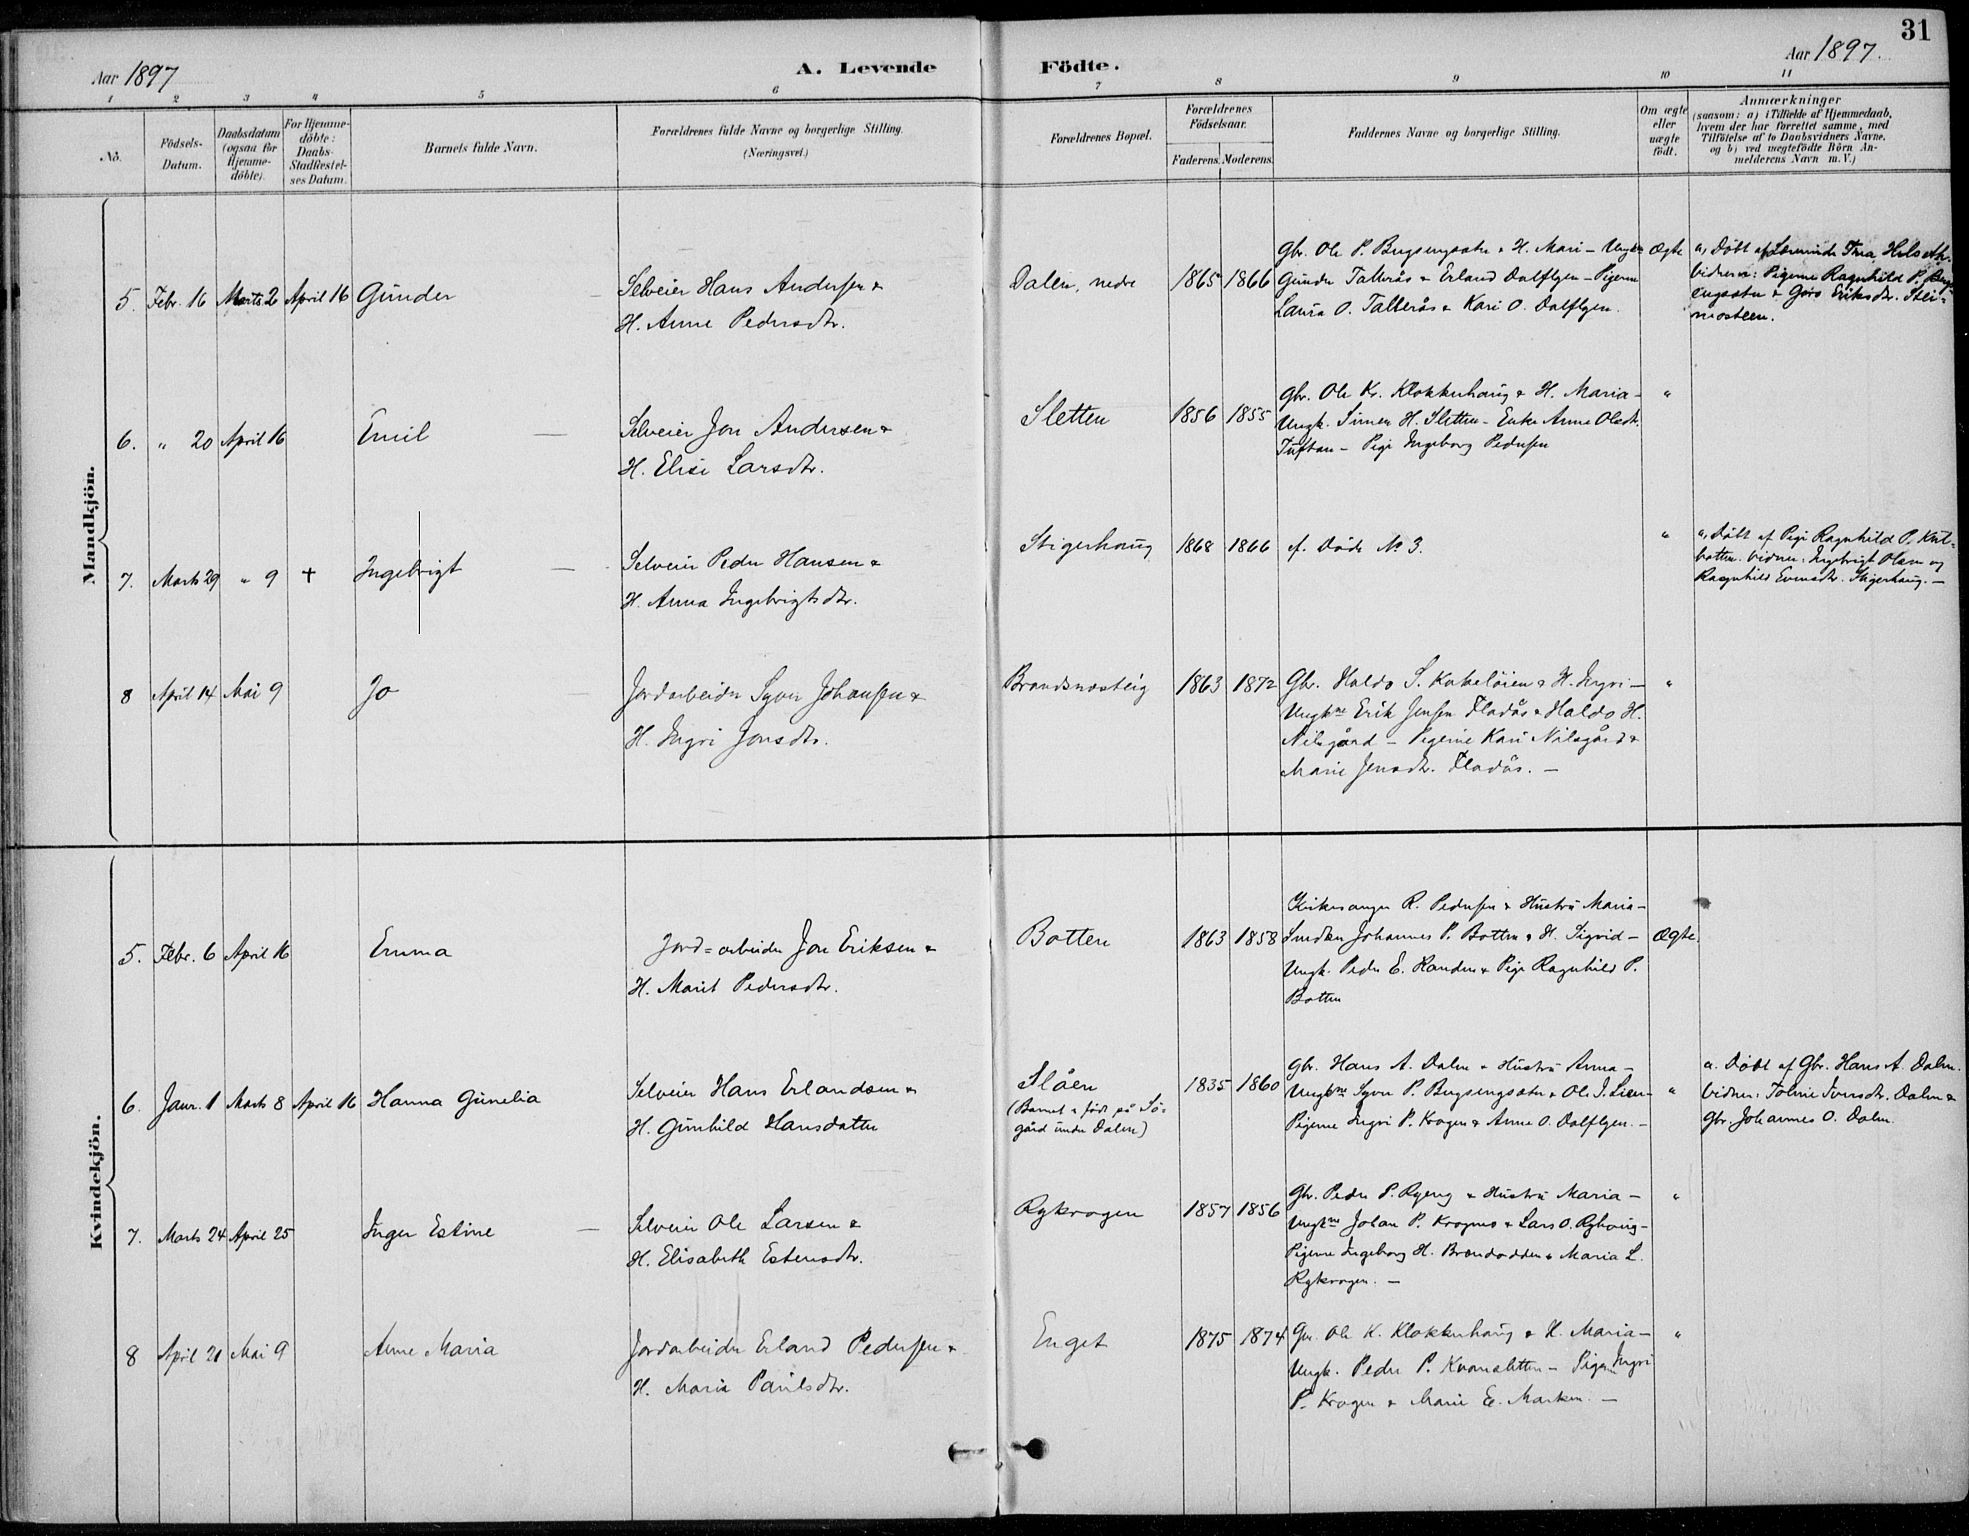 31
Aar 1897
A. Levende
Födte.
Aar 1897.
1 2 3 4 5 6 7 8 9 10 11
No.
Födsels-
Datum.
Daabsdatum
(ogsaa for
Hjemme-
döbte).
For Hjemme-
döbte:
Daabs-
Stadfæstel-
ses Datum.
Barnets fulde Navn.
Forældrenes fulde Navne og borgerlige Stilling.
(Næringsvei.)
Forældrenes Bopæl.
Forældrenes
Födselsaar.
Faderens. Moderens.
Faddernes Navne og borgerlige Stilling.
Om ægte
eller
uægte
födt.
Anmærkninger
(saasom: a) i Tilfælde af Hjemmedaab,
hvem der har forrettet samme, med
Tilföielse af to Daabsvidners Navne,
og b) ved uægtefödte Börn An-
melderens Navn m. V.)
Mandkjön.
5. Febr. 16 Marts 2 April 16 Gunder
Selveier Hans Andersen &
H. Anne Pedersdtr.
Dalen, nedre
1865 1866
Gbr. Ole P. Bugsengsæter & H. Mari – Ungk.
Gunder Tallerås & Erland Dalflyen – Pigerne
Laura O. Tallerås & Kari O. Dalflyen.
Ægte
a, Döbt af
Vidner: Pigerne Ragnhild P. Bugs-
engsæter & Goro Eriksdr. Stei-
mosteen.
6. " 20 April 16 Emil
Selveier Jon Andersen &
H. Elise Larsdtr.
Sletten
1856 1855
Gbr. Ole Kr. Klokkerhaug & H. Maria –
Ungk. Simen H. Sletten – Enke Anne Olsdtr.
Tuftan – Pige Ingeborg Pedersen
"
7. Marts 29 " 9 † Ingebrigt
Selveier Peder Hansen &
H. Anna Ingebrigtsdtr.
Stigerhaug
1868 1866
cf. Døde No 3.
"
a, Döbt af Pige Ragnhild P.
botten. Vidner: Ingebrigt Olsen og
Ragnhild Evensdtr. Stigerhaug. –
8 April 14 Mai 9 Jo
Jordarbeider Syver Johansen &
H. Ingri Jonsdtr.
Brandsnosteig
1863 1872
Gbr. Haldo S. Kabelöien & H. Ingri –
Ungkne Erik Jensen Fladås & Haldo H.
Nilsgård – Pigerne Kari Nilsgård &
Marie Jensdtr. Fladås. –
"
Kvindekjön.
5. Febr. 6 April 16 Emma
Jord=arbeider Jon Eriksen &
H. Marit Pedersdtr.
Botten
1863 1858
Kirkesanger R. Pedersen & Hustru Maria –
Smeden Johannes P. Botten & H. Sigrid –
Ungk. Peder E. Randen & Pige Ragnhild P.
Botten
Ægte.
6. Janr. 1 Marts 8 April 16 Hanna Gunelia
Selveier Hans Erlandsen &
H. Gunhild Hansdatter
Slåen
(Barnet er født på Sö-
gård under Dalen)
1835 1860
Gbr. Hans A. Dalen & Hustru Anna –
Ungkne Syver P. Bugsengsæter & Ole J. Lien –
Pigerne Ingri P. Kragen & Anne O. Dalflyen. –
"
a. Döbt af Gbr. Hans A. Dalen.
Vidner: Toline Iversdtr. Dalen &
Gbr. Johannes O. Dalen.
7. Marts 24 April 25 Inger Estine
Selveier Ole Larsen &
H. Elisabeth Estensdtr.
Rykragen
1857 1856
Gbr. Peder P. Ryeng & Hustru Maria –
Ungkne Johan P. Kragmo & Lars O. Ryhaug –
Pigerne Ingeborg H. Brændodden & Maria L.
Rykragen. –
"
8 April 21 Mai 9 Anne Maria
Jordarbeider Erland Pedersen &
H. Maria Paulsdtr.
Enget
1875 1874
Gbr. Ole K. Klokkerhaug & H. Maria –
Ungk. Peder P. Kvamsletten – Pigerne Ingri
P. Kragen & Marie E. Marken. –
"